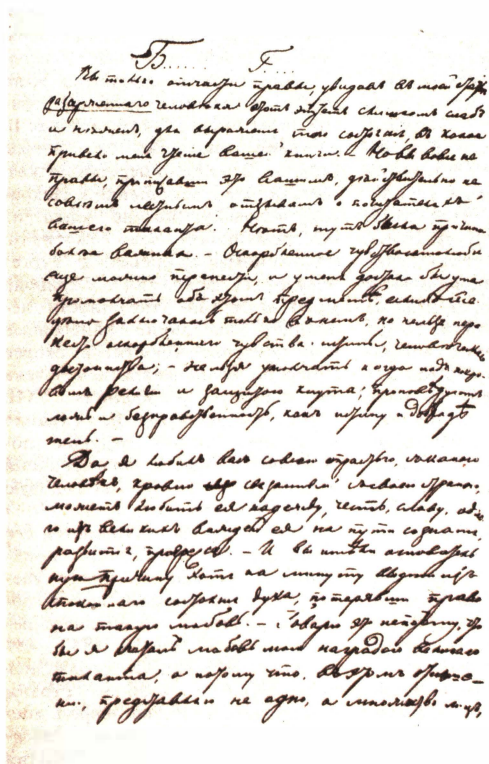 Б...... Г.....
Вы только отчасти правы, увидавъ въ моей статьѣ
разсерженнаго человѣка: этотъ эпитетъ слишкомъ слабъ
и нѣженъ, для выраженія того состоянія, въ какое
привело меня чтеніе вашей книги. – Но вы вовсе не
правы, приписавши это вашимъ, дѣйствительно не
совсѣмъ лестнымъ отзывамъ о почитателяхъ
вашего таланта. Нѣтъ, тутъ была причина
болѣе важная. – Оскорбленное чувство самолюбія
еще можно перенести, и у меня достало бы ума
промолчать объ этомъ предметѣ, еслибъ все
дѣло заключалось только въ немъ, но нельзя пере-
несть оскорбленнаго чувства истины, человѣческаго
достоинства; – нельзя умолчать когда подъ покро-
вомъ религіи и защитою кнута, проповѣдуютъ
ложь и безнравственность, какъ истину и добродѣ
тель. –
Да, я любилъ васъ со всею страстью, съ какою
человѣкъ, кровно связанный съ своею страною,
можетъ любить ея надежду, честь, славу, одно-
го изъ великихъ вождей ея на пути сознанія,
развитія, прогресса. – И вы имѣли основатель
ную причину хоть на минуту выдти изъ
спокойнаго состоянія духа, потерявши право
на такую любовь. – Говорю это не потому, что
бы я считалъ любовь мою наградою великаго
таланта, а потому что, въ этомъ отноше-
ніи, представляю не одно, а множество лицъ,